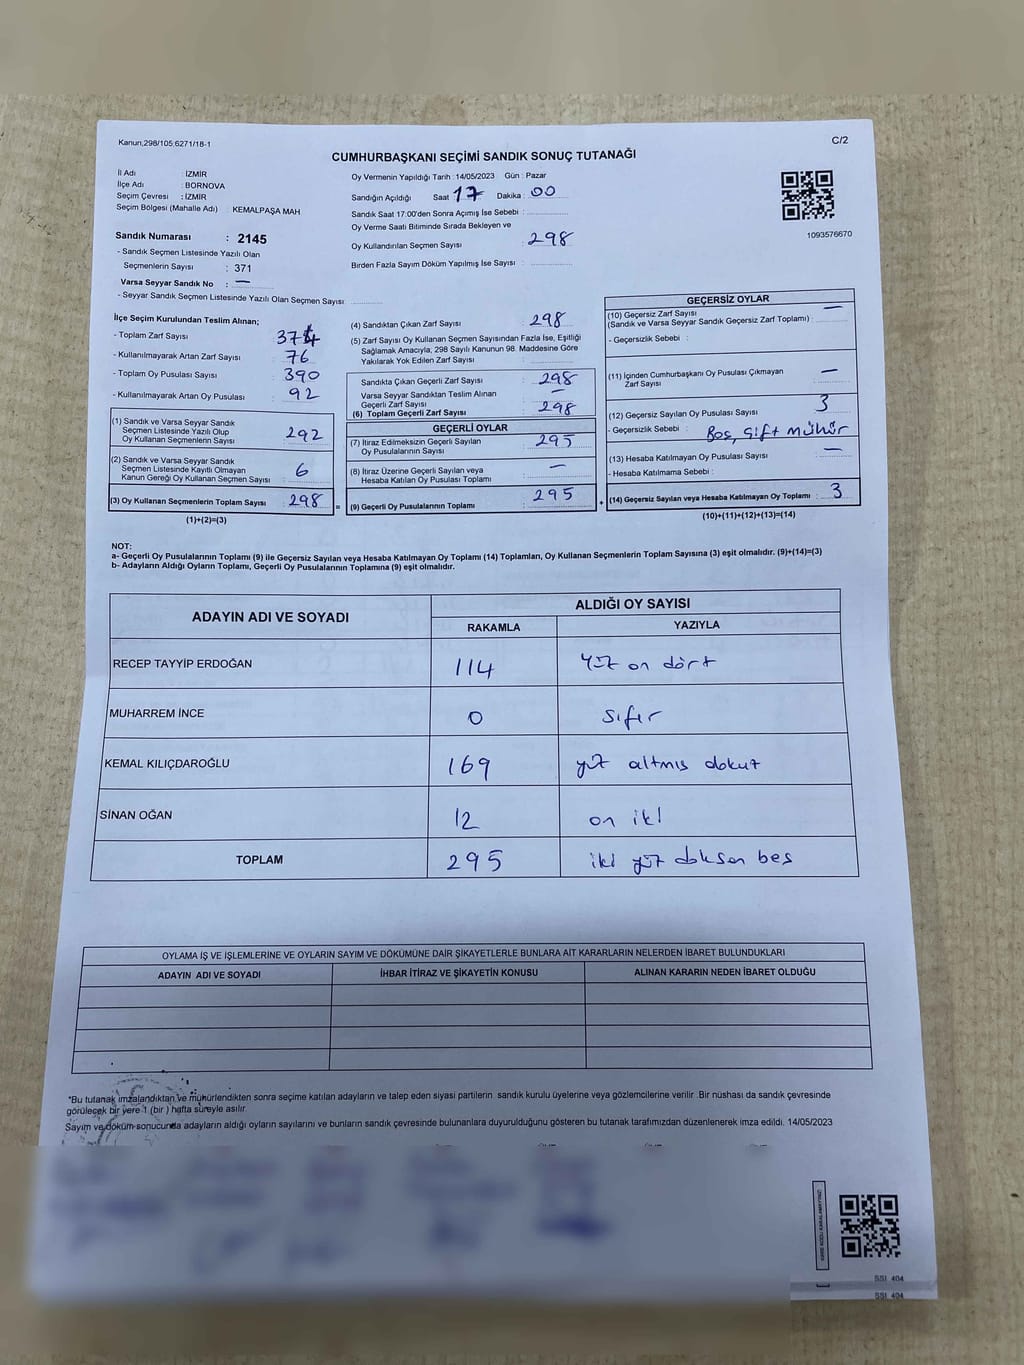 Kanun,298/105;6271/18-1
C/2
CUMHURBAŞKANI SEÇİMİ SANDIK SONUÇ TUTANAĞI
İl Adı : İZMİR
İlçe Adı : BORNOVA
Seçim Çevresi : İZMİR
Seçim Bölgesi (Mahalle Adı) : KEMALPAŞA MAH
Sandık Numarası : 2145
- Sandık Seçmen Listesinde Yazılı Olan
Seçmenlerin Sayısı : 371
Varsa Seyyar Sandık No : —
- Seyyar Sandık Seçmen Listesinde Yazılı Olan Seçmen Sayısı:
Oy Vermenin Yapıldığı Tarih :14/05/2023 Gün : Pazar
Sandığın Açıldığı Saat 17 Dakika : 00
Sandık Saat 17:00'den Sonra Açımış İse Sebebi :
Oy Verme Saati Bitiminde Sırada Bekleyen ve
Oy Kullandırılan Seçmen Sayısı : 298
Birden Fazla Sayım Döküm Yapılmış İse Sayısı :
1093576670
İlçe Seçim Kurulundan Teslim Alınan;
- Toplam Zarf Sayısı :
- Kullanılmayarak Artan Zarf Sayısı : 76
- Toplam Oy Pusulası Sayısı : 390
- Kullanılmayarak Artan Oy Pusulası : 92
(1) Sandık ve Varsa Seyyar Sandık
Seçmen Listesinde Yazılı Olup
Oy Kullanan Seçmenlerin Sayısı : 292
(2) Sandık ve Varsa Seyyar Sandık
Seçmen Listesinde Kayıtlı Olmayan
Kanun Gereği Oy Kullanan Seçmen Sayısı : 6
(3) Oy Kullanan Seçmenlerin Toplam Sayısı : 298
(1)+(2)=(3)
(4) Sandıktan Çıkan Zarf Sayısı : 298
(5) Zarf Sayısı Oy Kullanan Seçmen Sayısından Fazla İse, Eşitliği
Sağlamak Amacıyla; 298 Sayılı Kanunun 98. Maddesine Göre
Yakılarak Yok Edilen Zarf Sayısı :
Sandıkta Çıkan Geçerli Zarf Sayısı : 298
Varsa Seyyar Sandıktan Teslim Alınan
Geçerli Zarf Sayısı : —
(6) Toplam Geçerli Zarf Sayısı : 298
GEÇERLİ OYLAR
(7) İtiraz Edilmeksizin Geçerli Sayılan
Oy Pusulalarının Sayısı : 295
(8) İtiraz Üzerine Geçerli Sayılan veya
Hesaba Katılan Oy Pusulası Toplamı : —
= (9) Geçerli Oy Pusulalarının Toplamı : 295
GEÇERSİZ OYLAR
(10) Geçersiz Zarf Sayısı —
(Sandık ve Varsa Seyyar Sandık Geçersiz Zarf Toplamı) :
- Geçersizlik Sebebi :
(11) İçinden Cumhurbaşkanı Oy Pusulası Çıkmayan
Zarf Sayısı : —
(12) Geçersiz Sayılan Oy Pusulası Sayısı : 3
- Geçersizlik Sebebi : Boş, çift mühür
(13) Hesaba Katılmayan Oy Pusulası Sayısı : —
- Hesaba Katılmama Sebebi :
+ (14) Geçersiz Sayılan veya Hesaba Katılmayan Oy Toplamı : 3
(10)+(11)+(12)+(13)=(14)
NOT:
a- Geçerli Oy Pusulalarının Toplamı (9) ile Geçersiz Sayılan veya Hesaba Katılmayan Oy Toplamı (14) Toplamları, Oy Kullanan Seçmenlerin Toplam Sayısına (3) eşit olmalıdır. (9)+(14)=(3)
b- Adayların Aldığı Oyların Toplamı, Geçerli Oy Pusulalarının Toplamına (9) eşit olmalıdır.
ADAYIN ADI VE SOYADI ALDIĞI OY SAYISI
RAKAMLA YAZIYLA
RECEP TAYYİP ERDOĞAN 114 Yüz on dört
MUHARREM İNCE 0 sıfır
KEMAL KILIÇDAROĞLU 169 yüz altmış dokuz
SİNAN OĞAN 12 on iki
TOPLAM 295 iki yüz doksan beş
OYLAMA İŞ VE İŞLEMLERİNE VE OYLARIN SAYIM VE DÖKÜMÜNE DAİR ŞİKAYETLERLE BUNLARA AİT KARARLARIN NELERDEN İBARET BULUNDUKLARI
ADAYIN ADI VE SOYADI İHBAR İTİRAZ VE ŞİKAYETİN KONUSU ALINAN KARARIN NEDEN İBARET OLDUĞU
*Bu tutanak imzalandıktan ve mühürlendikten sonra seçime katılan adayların ve talep eden siyasi partilerin sandık kurulu üyelerine veya gözlemcilerine verilir. Bir nüshası da sandık çevresinde
görülecek bir yere 1 (bir ) hafta süreyle asılır.
Sayım ve döküm sonucunda adayların aldığı oyların sayılarını ve bunların sandık çevresinde bulunanlara duyurulduğunu gösteren bu tutanak tarafımızdan düzenlenerek imza edildi. 14/05/2023
SSI 404
SSI 404